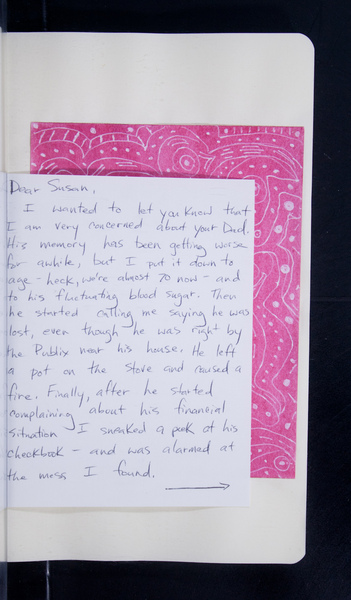 Dear Susan,
I wanted to let you know that
I am very concerned about your Dad.
His memory has been getting worse
for awhile, but I put it down to
age - heck, we're almost 70 now - and
to his fluctuating blood sugar. Then
he started calling me saying he was
lost, even though he was right by
the Publix near his house. He left
a pot on the stove and caused a
fire. Finally, after he started
complaining about his financial
situation I sneaked a peek at his
checkbook - and was alarmed at
the mess I found.